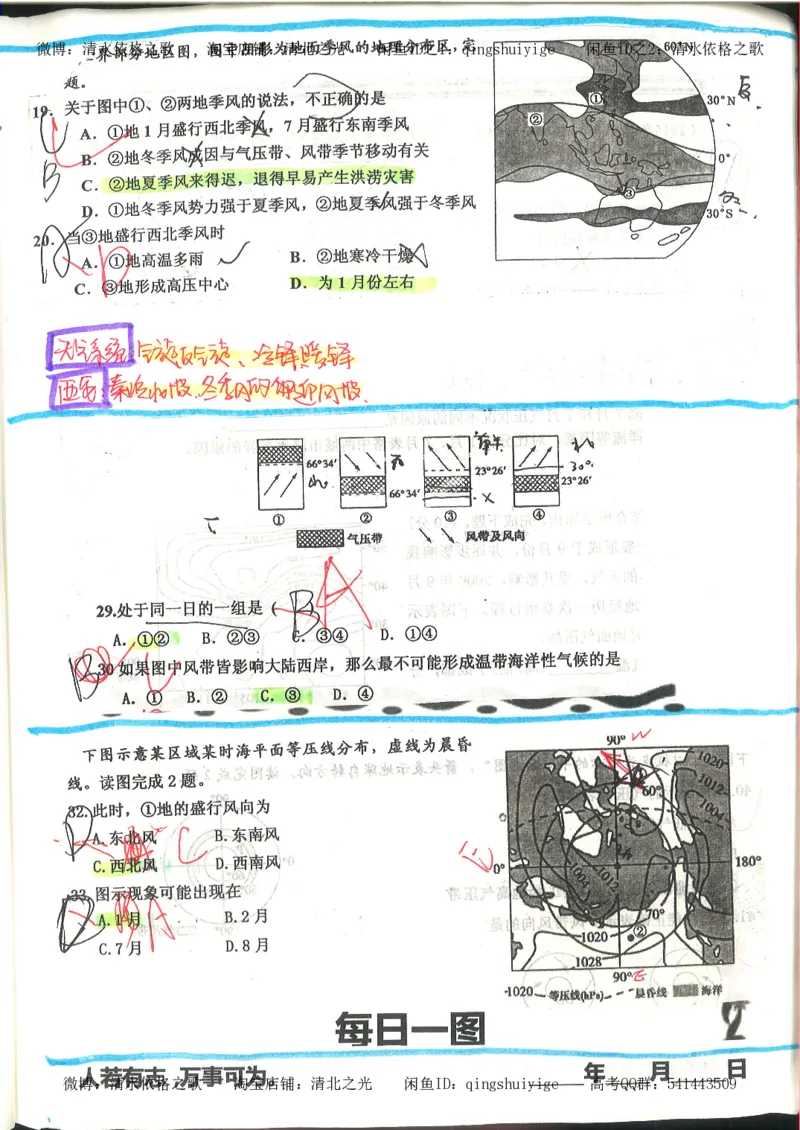 微博：清水依格之歌 淘宝店铺：清北之光 闲鱼ID1：qingshuiyige 闲鱼ID之2：清水依格之歌
界部分地区图，图中阴影为地面季风的地理分布区，完
题。
19．关于图中①、②两地季风的说法，不正确的是
A．①地1月盛行西北季风，7月盛行东南季风
B．②地冬季风成因与气压带、风带季节移动有关
C．②地夏季风来得迟，退得早易产生洪涝灾害
D．①地冬季风势力强于夏季风，②地夏季风强于冬季风
20．当③地盛行西北季风时
A．①地高温多雨 B．②地寒冷干燥
C．③地形成高压中心 D．为1月份左右
60°N
30°N
0°
30°S
①
②
③
天气系统：气旋反气旋、冷锋暖锋
西安：秦岭
66°34′
66°34′
23°26′
30°
23°26′
① ② ③ ④
气压带 风带及风向
29.处于同一日的一组是（ B A
A．①② B．②③ C．③④ D．①④
30 如果图中风带皆影响大陆西岸，那么最不可能形成温带海洋性气候的是
A．① B．② C．③ D．④
下图示意某区域某时海平面等压线分布，虚线为晨昏
线。读图完成2题。
32.此时，①地的盛行风向为
A.东北风 B.东南风
C.西北风 D.西南风
33.图示现象可能出现在
A.1月 B.2月
C.7月 D.8月
90° W
1020
1012
1004
①
60°
0°
180°
1004
1012
70°
②
1020
1028
90° E
-1020- 等压线(hPa) 晨昏线 海洋
每日一图
2
人若有志，万事可为。 年 月 日
微博：清水依格之歌 淘宝店铺：清北之光 闲鱼ID：qingshuiyige 高考QQ群：541443509